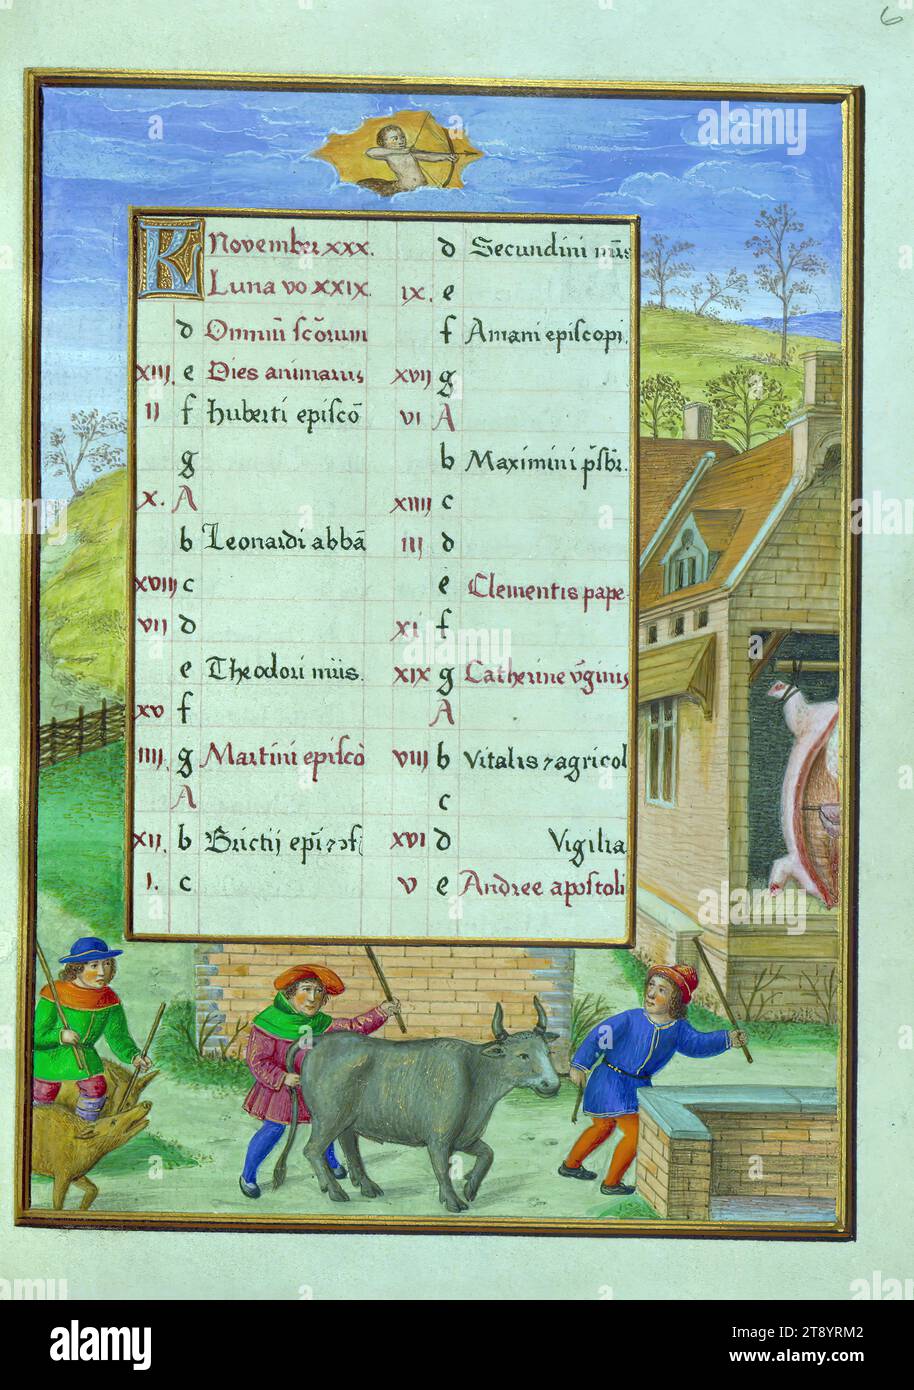 6
K November xxx.
Luna vo xxix.
d Omniū scōrum
xiij. e Dies animarus
ij f Huberti episcō
g
x. A
b Leonardi abbā
xviij c
vij d
e Theodori mūs.
xv f
iiij g Martini episcō
A
xij. b Brictij epī ⁊ ɔf
j. c
d Secundini mūs
ix. e
f Amani episcopi.
xvij g
vi A
b Maximini psbr.
xiiij c
iij d
e Clementis pape
xi f
xix g Catherine vginis
A
viij b Vitalis ⁊ agricol
c
xvi d Vigilia
v e Andree apostoli
alamy
Image ID: 2T8YRM2
www.alamy.com